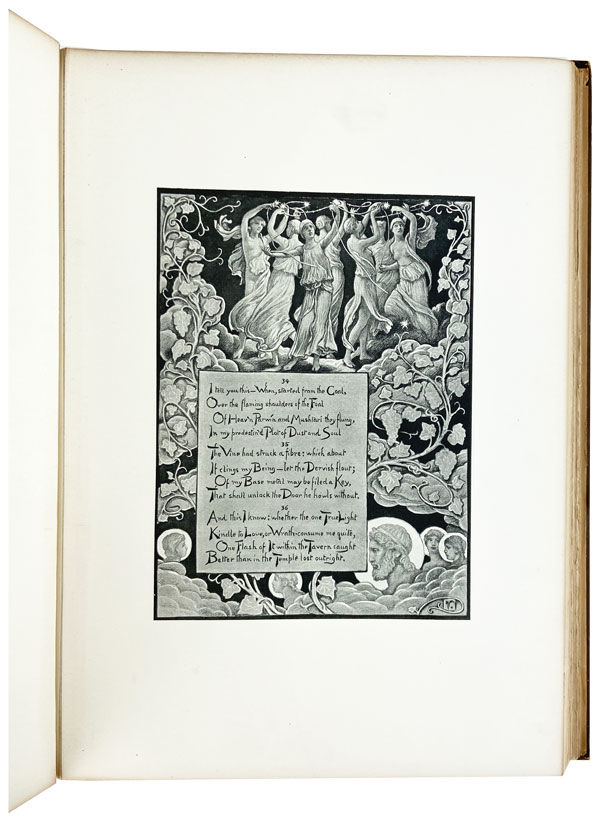 34
I tell you this—When, started from the Goal,
Over the flaming shoulders of the Foal
Of Heav'n Parwín and Mushtarí they flung,
In my predestin'd Plot of Dust and Soul
35
The Vine had struck a fibre: which about
If clings my Being—let the Dervish flout;
Of my Base metal may be filed a Key,
That shall unlock the Door he howls without.
36
And this I know: whether the one True Light
Kindle to Love, or Wrath-consume me quite,
One Flash of It within the Tavern caught
Better than in the Temple lost outright.